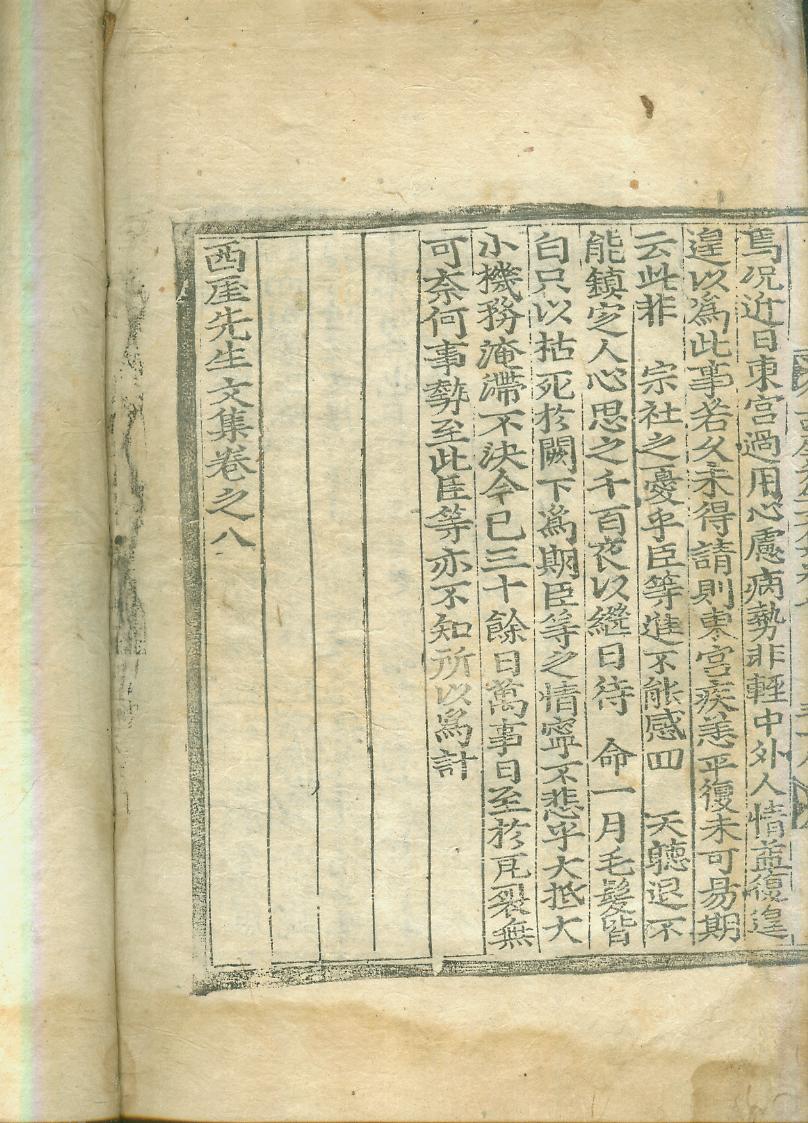 焉况近日東宮過用心慮病勢非輕中外人情益復遑
遑以爲此事若久未得請則東宮疾恙平復未可易期
云此非　宗社之憂乎臣等進不能感回　天聽退不
能鎮定人心思之千百夜以繼日待　命一月毛髮皆
白只以枯死於闕下爲期臣等之情寧不悲乎大抵大
小機務淹滯不決今已三十餘日萬事日至於瓦裂無
可奈何事勢至此臣等亦不知所以爲計
西厓先生文集卷之八